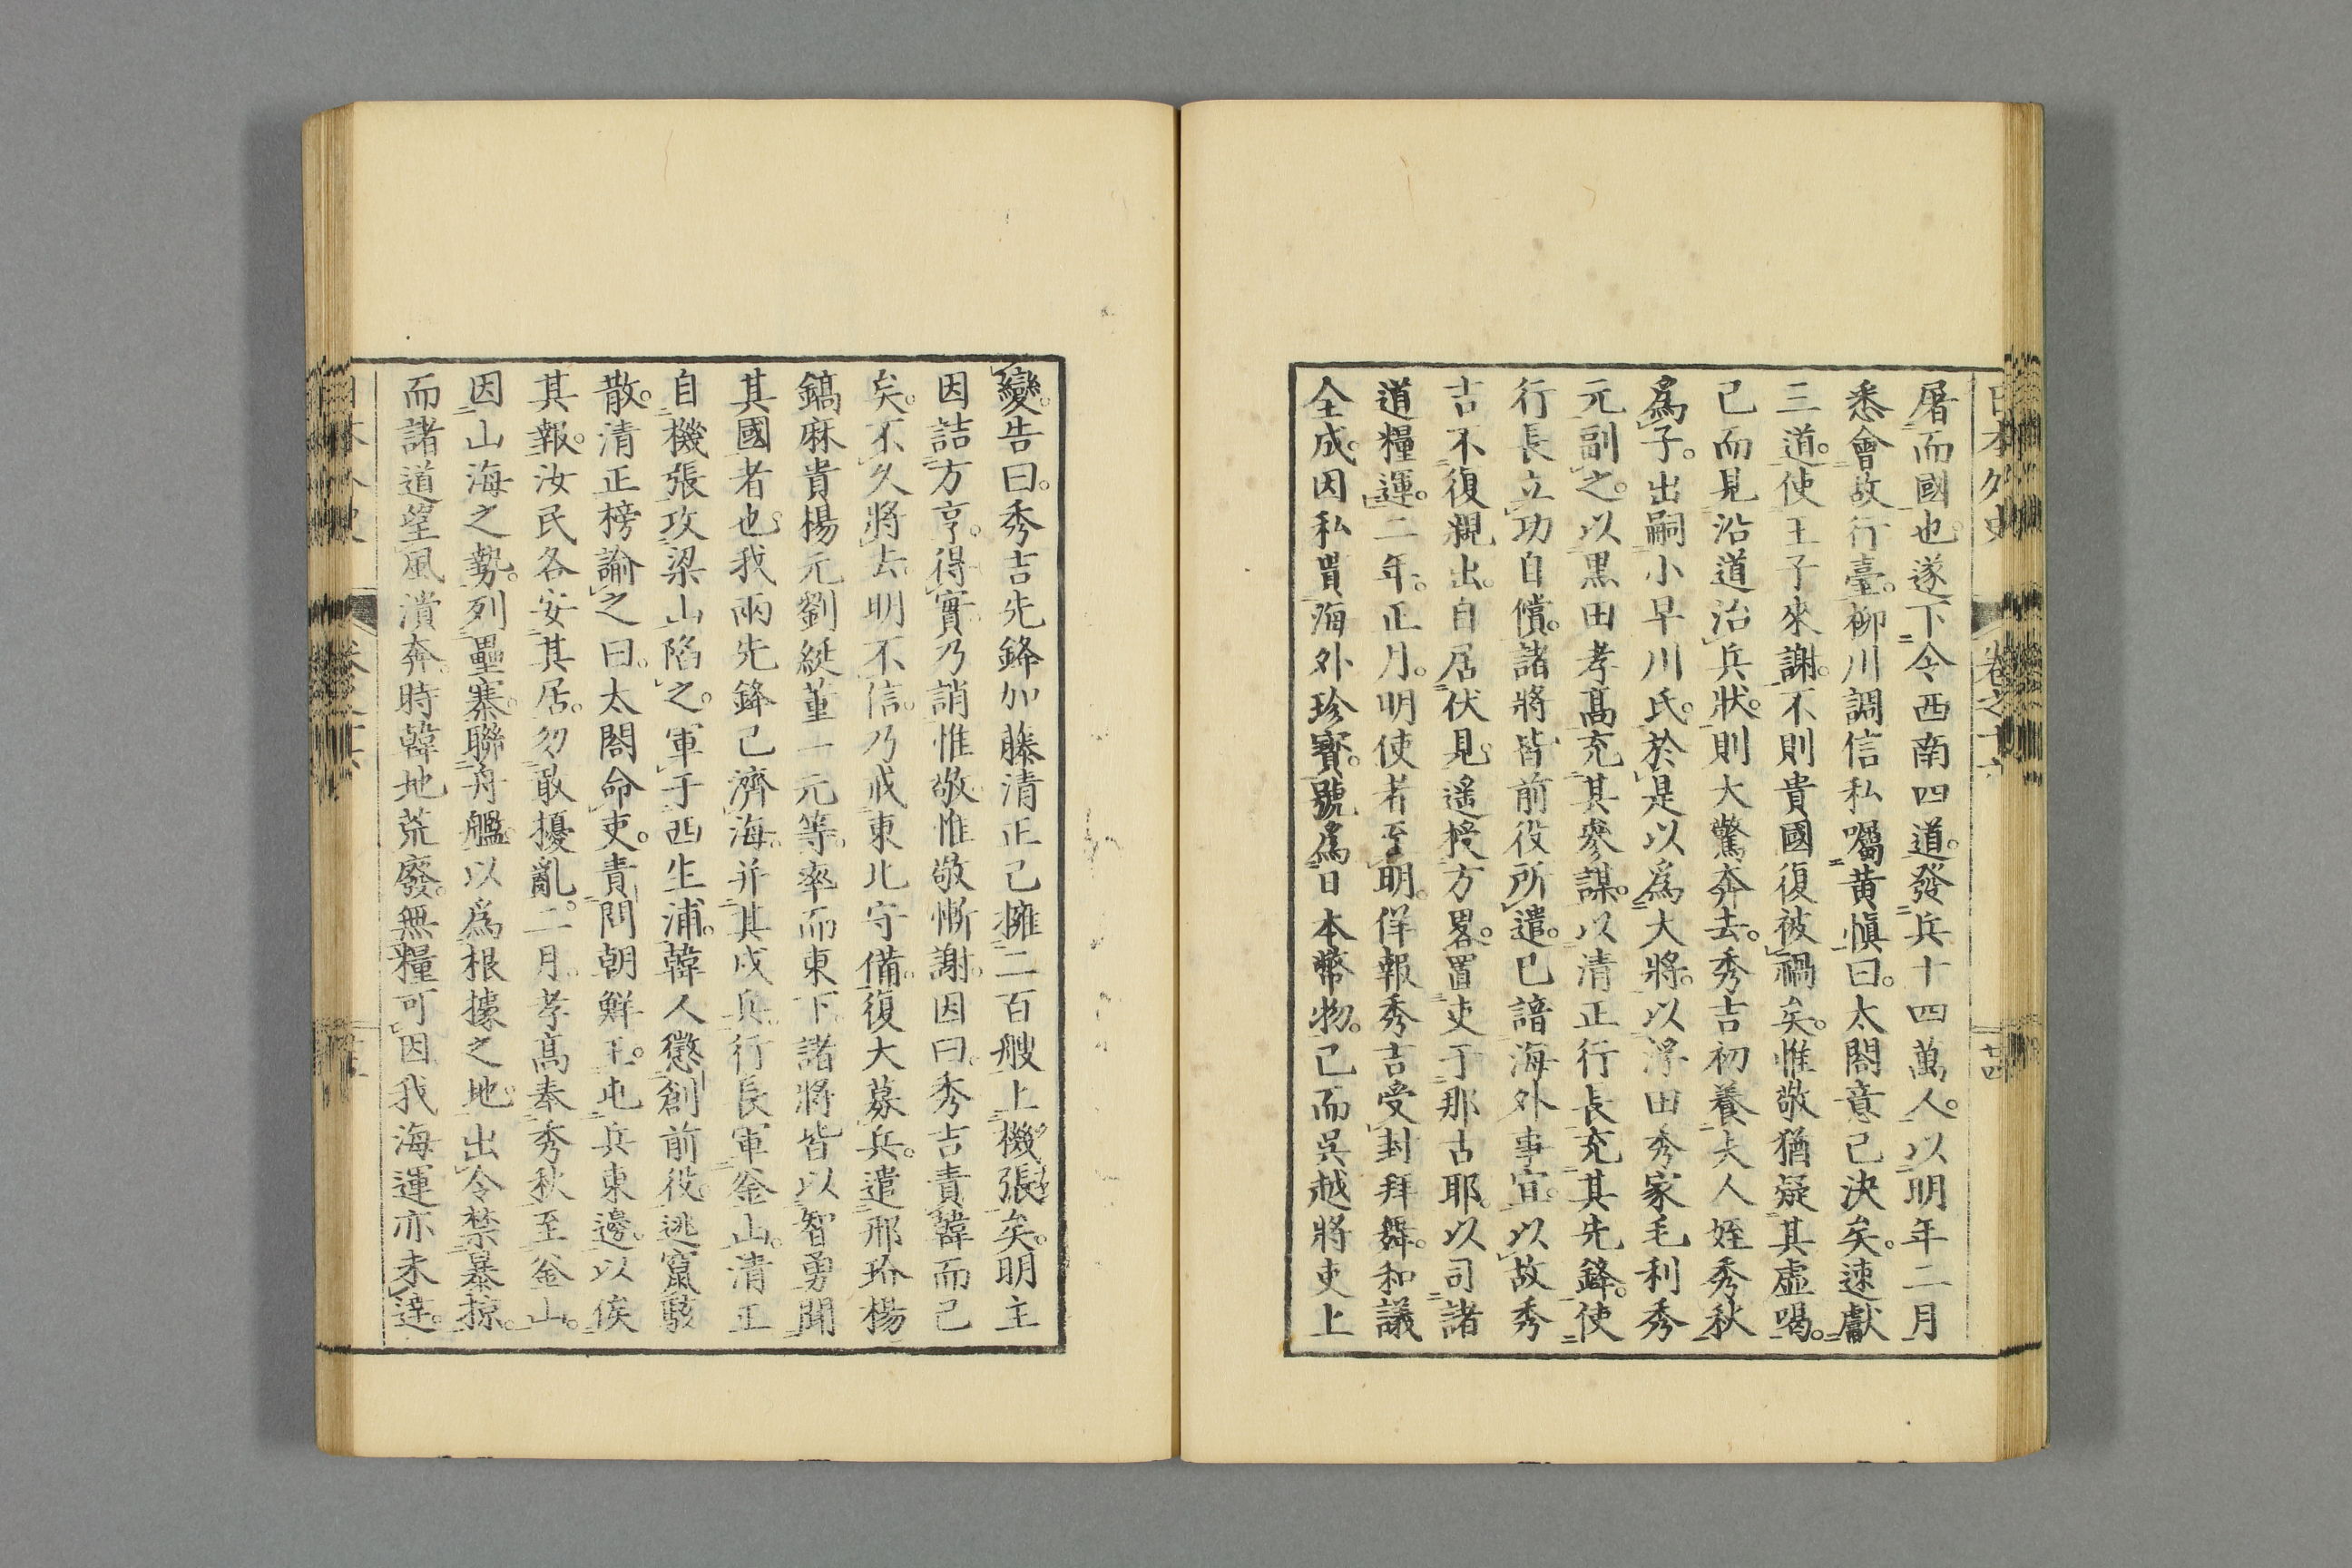 日本外史 卷之十六 廿四
屠而國也遂下令西南四道。發兵十四萬人。以明年二月
悉會故行臺。柳川調信私囑黄愼曰。太閤意已決矣。速獻
三道。使王子來謝。不則貴國復被禍矣。惟敬猶疑其虛喝。
已而見沿道治兵狀。則大驚奔去。秀吉初養夫人姪秀秋
爲子。出嗣小早川氏。於是以爲大將。以浮田秀家毛利秀
元副之。以黒田孝高充其參謀。以清正行長充其先鋒。使
行長立功自償。諸將皆前役所遣。已諳海外事宜。以故秀
吉不復親出。自居伏見。遙授方畧。置吏于那古耶。以司諸
道糧運。二年。正月。明使者至明。佯報秀吉受封拜舞。和議
全成。因私買海外珍寶。號爲日本幣物。已而吳越將吏上
變。告曰。秀吉先鋒加藤清正已擁二百艘上機張矣。明主
因詰方亨。得實。乃誚惟敬。惟敬慚謝。因曰。秀吉責韓而已
矣。不久將去。明不信。乃戒東北守備。復大募兵。遣邢玠楊
鎬麻貴楊元劉綎董一元等。率而東下。諸將皆以智勇聞
其國者也。我兩先鋒已濟海。并其戍兵。行長軍釜山。清正
自機張攻梁山陷之。軍于西生浦。韓人懲創前役。逃竄駭
散。清正榜諭之曰。太閤命吏。責問朝鮮王。屯兵東邊。以俟
其報。汝民各安其居。勿敢擾亂。二月。孝高奉秀秋至釜山。
因山海之勢。列壘寨。聯舟艦。以爲根據之地。出令禁暴掠。
而諸道望風潰奔。時韓地荒廢。無糧可因。我海運亦未達。